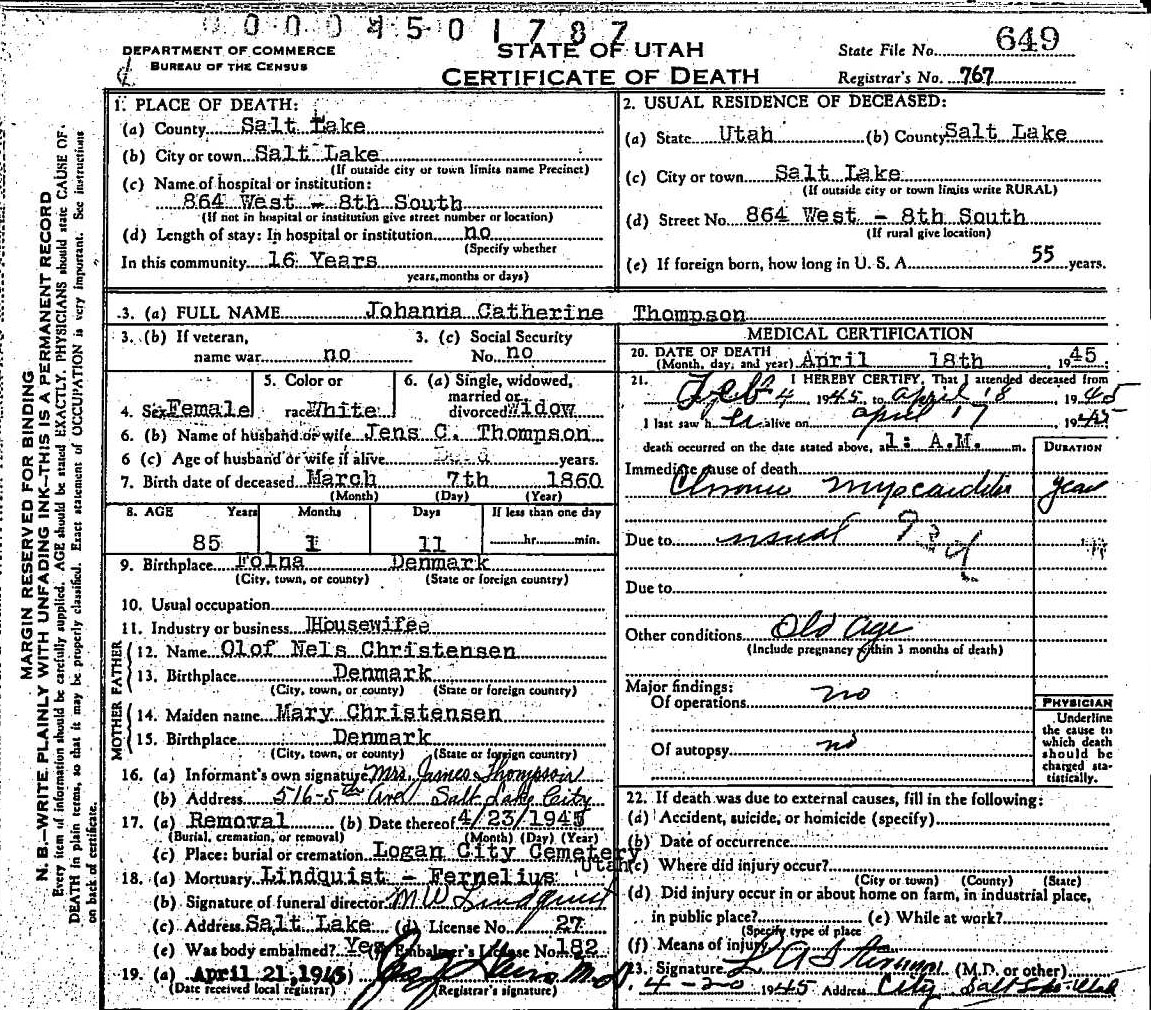 0 0 0 4 5 0 1 7 8 7
DEPARTMENT OF COMMERCE
BUREAU OF THE CENSUS
STATE OF UTAH
CERTIFICATE OF DEATH
State File No. 649
Registrar's No. 767
MARGIN RESERVED FOR BINDING
N. B.—WRITE PLAINLY WITH UNFADING INK—THIS IS A PERMANENT RECORD
Every item of information should be carefully supplied. AGE should be stated EXACTLY. PHYSICIANS should state CAUSE OF
DEATH in plain terms, so that it may be properly classified. Exact statement of OCCUPATION is very important. See instructions
on back of certificate.
1. PLACE OF DEATH:
(a) County Salt Lake
(b) City or town Salt Lake
(If outside city or town limits name Precinct)
(c) Name of hospital or institution:
864 West - 8th South
(If not in hospital or institution give street number or location)
(d) Length of stay: In hospital or institution no
(Specify whether
In this community 16 Years
years, months or days)
2. USUAL RESIDENCE OF DECEASED:
(a) State Utah (b) County Salt Lake
(c) City or town Salt Lake
(If outside city or town limits write RURAL)
(d) Street No. 864 West - 8th South
(If rural give location)
(e) If foreign born, how long in U. S. A. 55 years.
3. (a) FULL NAME Johanna Catherine Thompson
3. (b) If veteran,
name war no
3. (c) Social Security
No. no
4. Sex Female
5. Color or
race White
6. (a) Single, widowed,
married or
divorced Widow
6. (b) Name of husband or wife Jens C. Thompson
6 (c) Age of husband or wife if alive years.
7. Birth date of deceased March 7th 1860
(Month) (Day) (Year)
8. AGE Years Months Days If less than one day
85 1 11 hr. min.
9. Birthplace Folna Denmark
(City, town, or county) (State or foreign country)
10. Usual occupation
11. Industry or business Housewifee
FATHER
12. Name Olof Nels Christensen
13. Birthplace Denmark
(City, town, or county) (State or foreign country)
MOTHER
14. Maiden name Mary Christensen
15. Birthplace Denmark
(City, town, or county) (State or foreign country)
16. (a) Informant's own signature Mrs. James Thompson
(b) Address 516-5th Ave Salt Lake City
17. (a) Removal (b) Date thereof 4/23/1945
(Burial, cremation, or removal) (Month) (Day) (Year)
(c) Place: burial or cremation Logan City Cemetery
Utah
18. (a) Mortuary Lindquist - Fernelius
(b) Signature of funeral director M W Lindquist
(c) Address Salt Lake (d) License No. 27
(e) Was body embalmed? Yes Embalmer's License No. 182
19. (a) April 21, 1945
(Date received local registrar) (Registrar's signature)
MEDICAL CERTIFICATION
20. DATE OF DEATH
(Month, day, and year) April 18th 1945
21. I HEREBY CERTIFY, That I attended deceased from
Feb 4 1945, to april 18 1945
I last saw her alive on april 17 1945
death occurred on the date stated above, at 1: A.M. m.
DURATION
Immediate cause of death
Chronic myocarditis year
Due to usual
Due to
Other conditions Old age
(Include pregnancy within 3 months of death)
Major findings:
Of operations no
Of autopsy no
PHYSICIAN
Underline
the cause to
which death
should be
charged sta-
tistically.
22. If death was due to external causes, fill in the following:
(a) Accident, suicide, or homicide (specify)
(b) Date of occurrence
(c) Where did injury occur?
(City or town) (County) (State)
(d) Did injury occur in or about home on farm, in industrial place,
in public place? (e) While at work?
(Specify type of place
(f) Means of injury
23. Signature (M.D. or other)
4-20 1945 Address City Salt Lake Utah